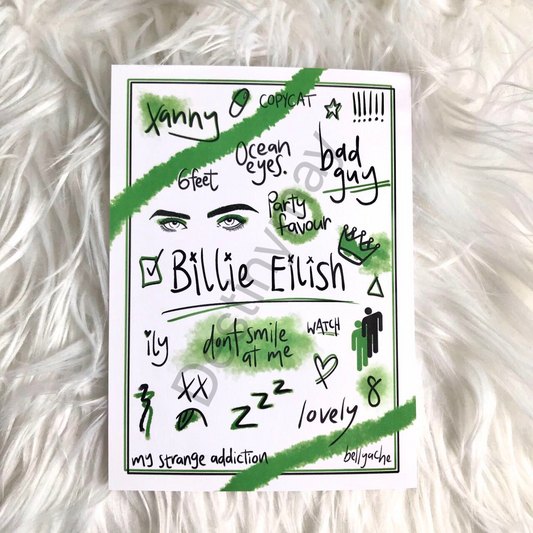 xanny
COPYCAT
!!!!!!
Ocean
eyes.
bad
guy
6feet
Party
favour
Billie Eilish
ily
dont smile
at me
WATCH
8
XX
zzz
lovely
my strange addiction
bellyache